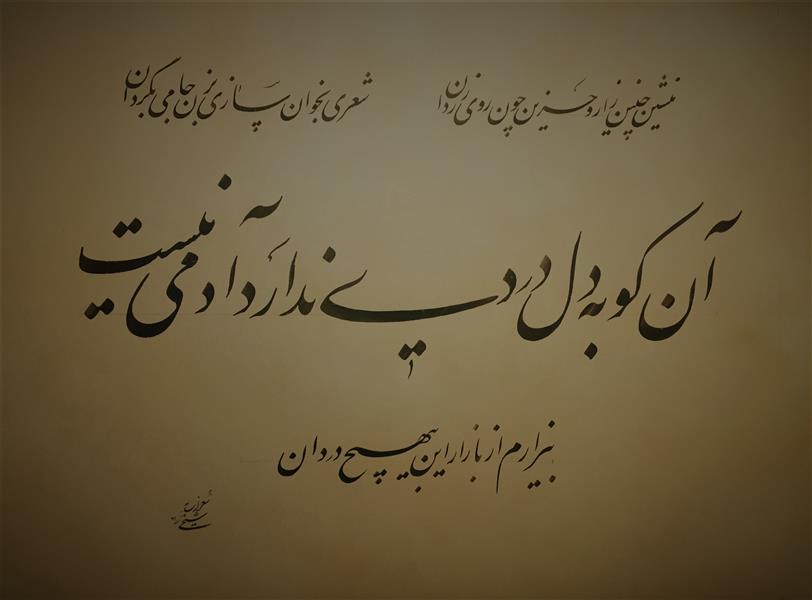 منشین چنین زار و حزین چون روی زردان شعری بخوان سازی بزن جامی بگردان
آن کو به دل دردی ندارد آدمی نیست
بیزارم از بازار این بیهیچ دردان
شعر از سایه